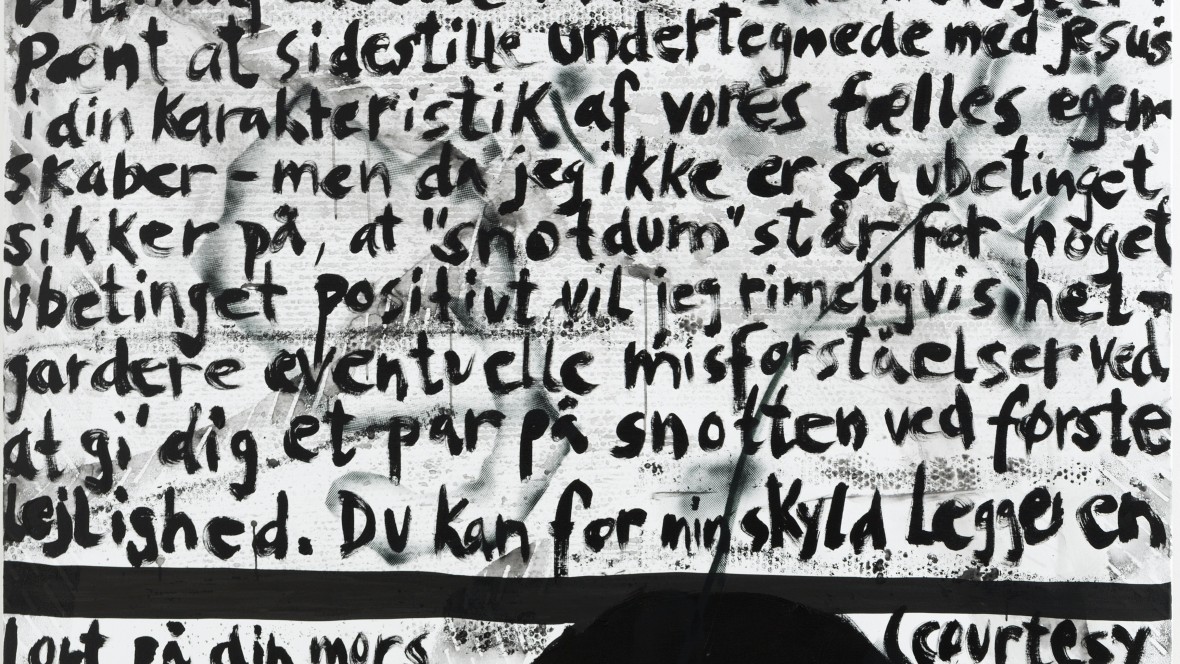 Pænt at sidestille undertegnede med jesus
i din karakteristik af vores fælles egen-
skaber - men da jeg ikke er så ubetinget
sikker på, at "snotdum" står for noget
ubetinget positivt vil jeg rimeligvis hel-
gardere eventuelle misforståelser ved
at gi' dig et par på snotten ved første
lejlighed. Du kan for min skyld lægge en
lort på din mors (courtesy